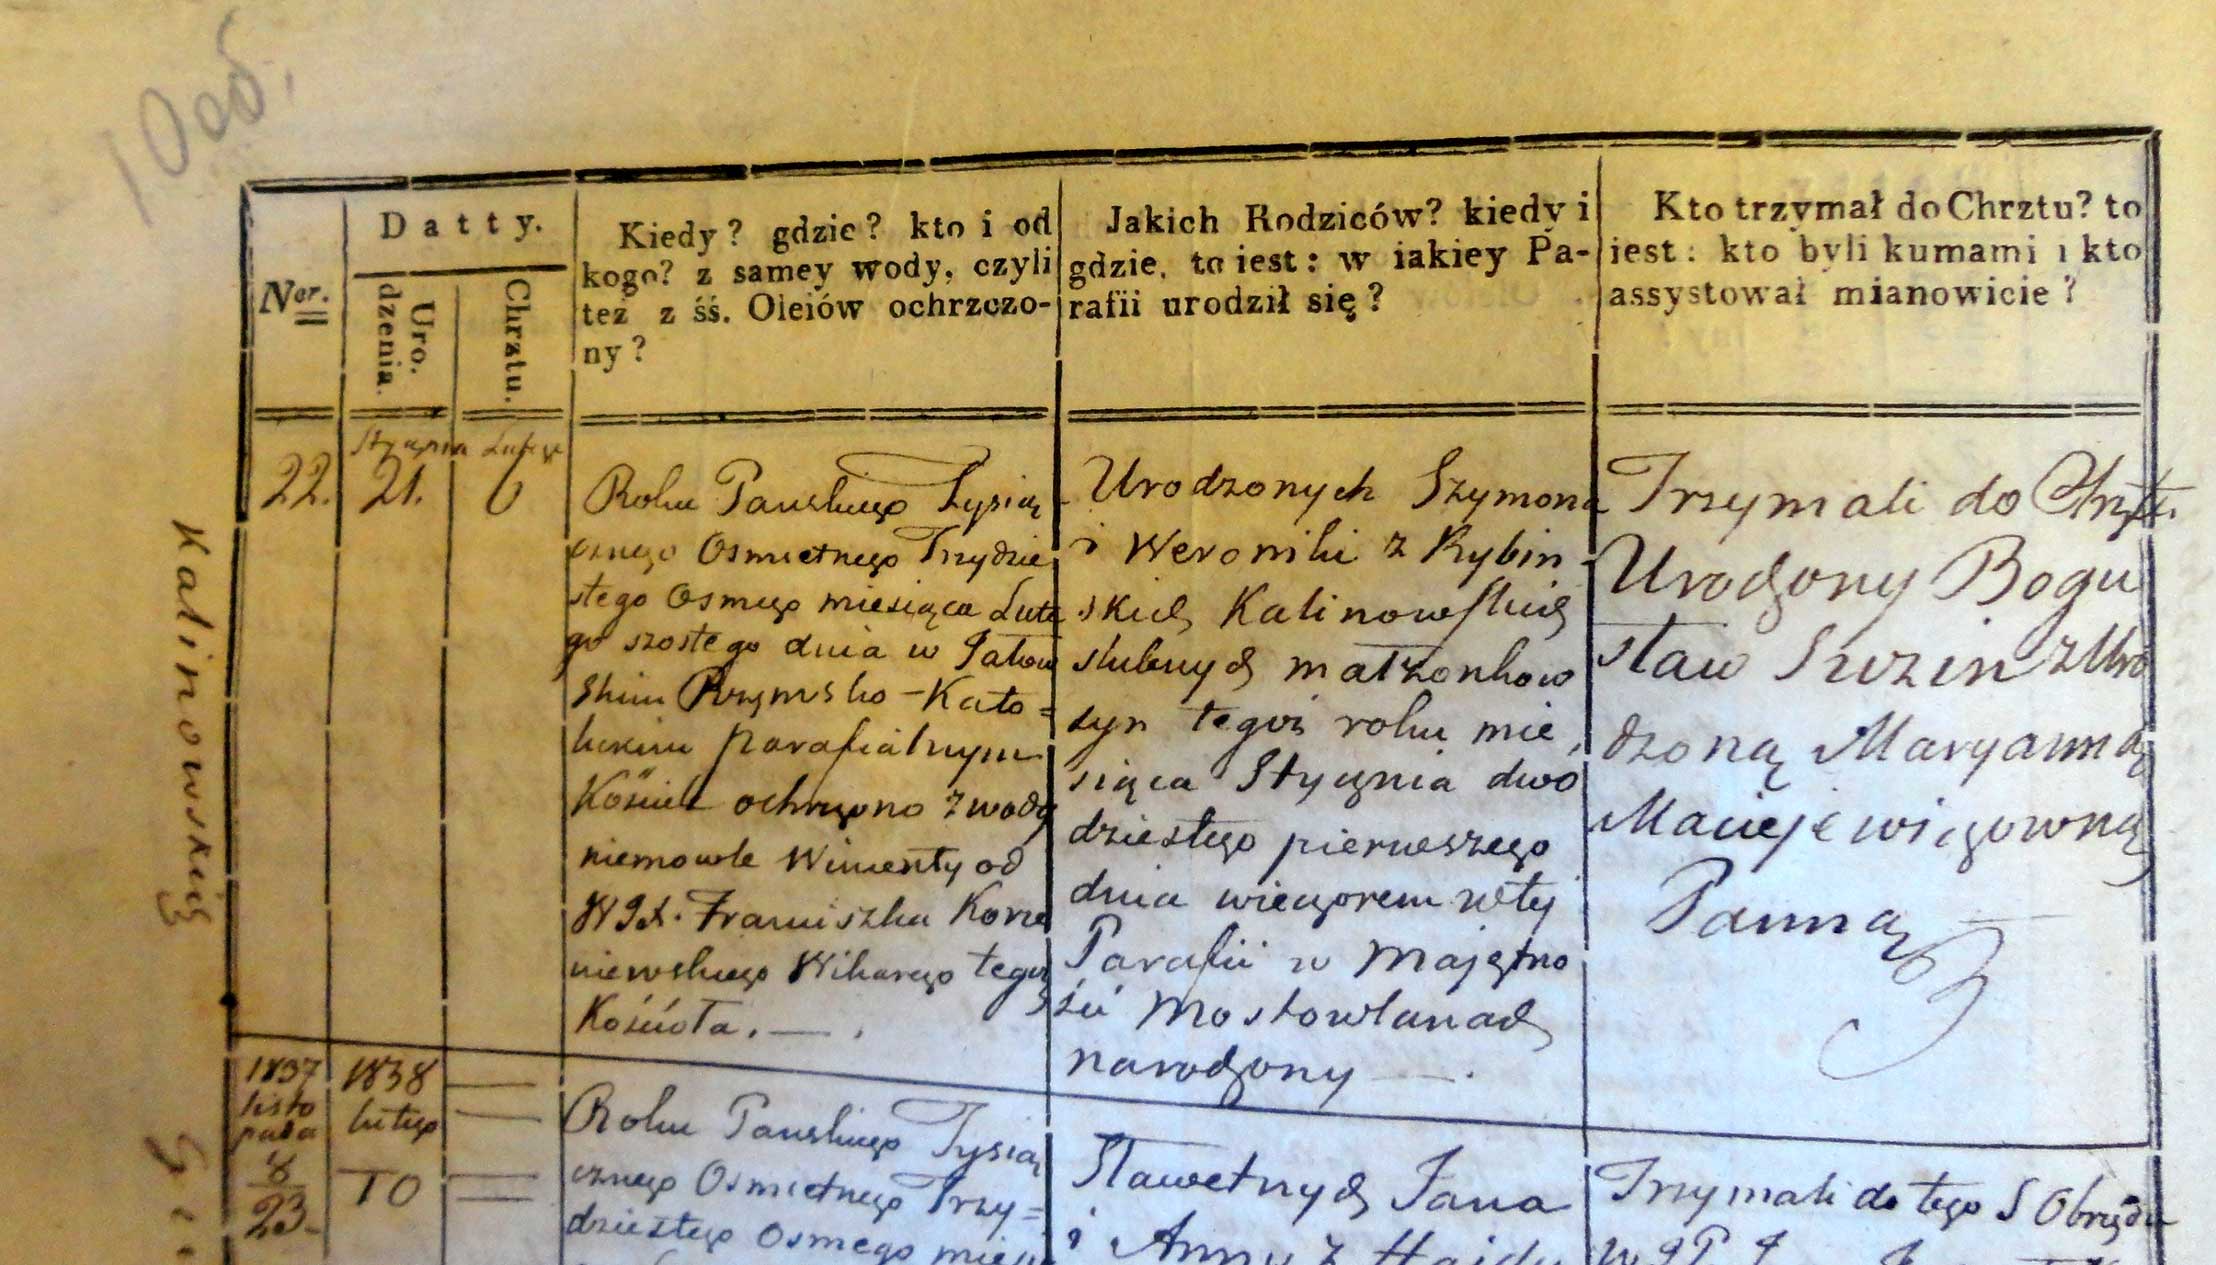 10 об.
Datty.
Ner.
Uro.
dzenia.
Chrztu.
Kiedy? gdzie? kto i od
kogo? z samey wody, czyli
też z śś. Oleiów ochrzczo-
ny?
Jakich Rodziców? kiedy i
gdzie, to iest: w iakiey Pa-
rafii urodził się?
Kto trzymał do Chrztu? to
iest: kto byli kumami i kto
assystował mianowicie?
Kalinowskich
22.
Stycznia
21.
Lutego
6
Roku Pańskiego Tysią
cznego Osmsetnego Trzydzie
stego Osmego miesiąca Lute
go szostego dnia w Jałow
skim Rzymsko-Kato=
lickim parafialnym
Kościele ochrzczono z wody
niemowle Wincenty od
WJX. Franciszka Korze
niewskiego Wikarego tegoż
Kościoła. — .
Urodzonych Szymona
i Weroniki z Rybin
skich Kalinowskich
slubnych małżonkow
syn tegoż roku mie
siąca Stycznia dwo
dziestego pierwszego
dnia wieczorem w tej
Parafii w Majętno
ści Mostowlanach
narodzony — .
Trzymali do Chrztu
Urodzony Bogu
sław Suzin z Uro
dzoną Maryanną
Maciejewiczowną
Panną
1837
listo
pada
8
23.
1838
lutego
10
Roku Pańskiego Tysią
cznego Osmsetnego Trzy=
dziestego Osmego miesi
Sławetnych Jana
i Anny z
Trzymali do tego S Obrzędu